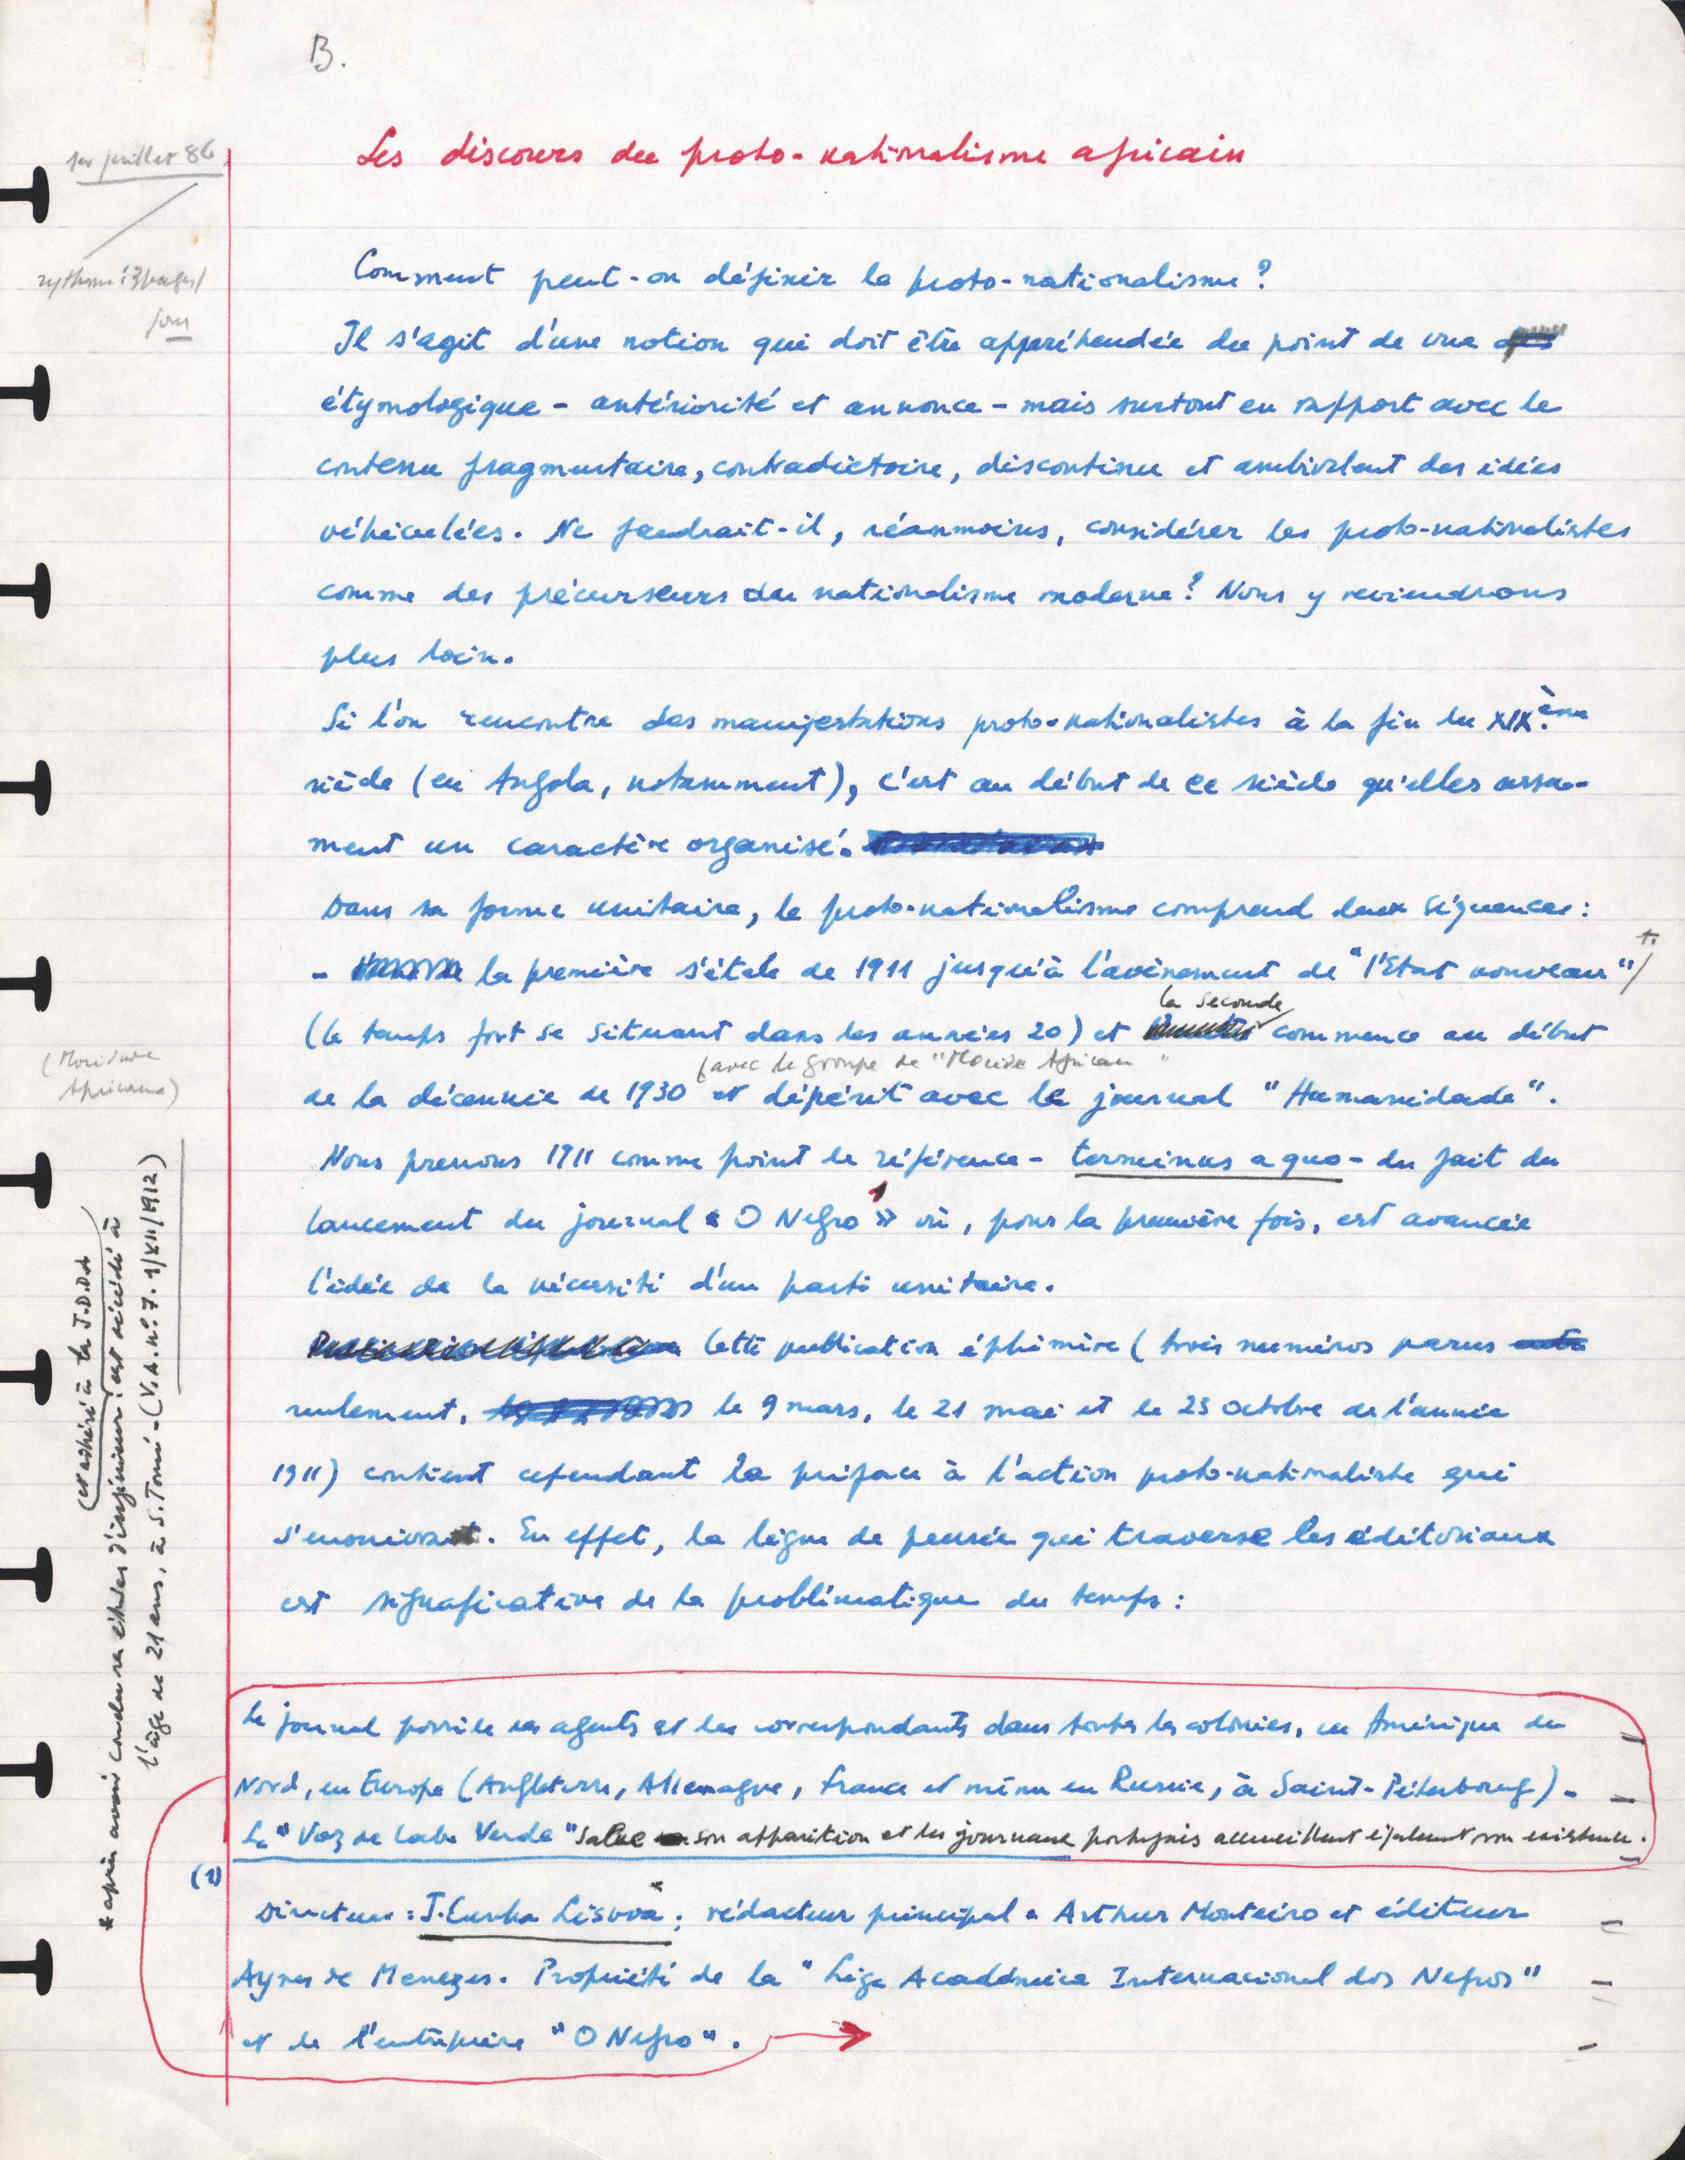 B.
1er juillet 86
rythme : 3 pages/
jour
Les discours du proto-nationalisme africain
Comment peut-on définir le proto-nationalisme ?
Il s'agit d'une notion qui doit être appréhendée du point de vue
étymologique - antériorité et annonce - mais surtout en rapport avec le
contenu fragmentaire, contradictoire, discontinu et ambivalent des idées
véhiculées. Ne faudrait-il, néanmoins, considérer les proto-nationalistes
comme des précurseurs du nationalisme moderne ? Nous y reviendrons
plus loin.
Si l'on rencontre des manifestations proto-nationalistes à la fin du XIXème
siècle (en Angola, notamment), c'est au début de ce siècle qu'elles assu-
ment un caractère organisé.
Dans sa forme unitaire, le proto-nationalisme comprend deux séquences :
- la première s'étale de 1911 jusqu'à l'avènement de "l'Etat nouveau"
la seconde
(le temps fort se situant dans les années 20) et commence au début
(avec le groupe de "Mocidade Africana"
de la décennie de 1930 et dépérit avec le journal "Humanidade".
(Mocidade
Africana)
Nous prenons 1911 comme point de référence - terminus a quo - du fait du
lancement du journal « O Negro » où, pour la première fois, est avancée
l'idée de la nécessité d'un parti unitaire.
Cette publication éphémère (trois numéros parus
seulement, le 9 mars, le 21 mai et le 23 octobre de l'année
1911) contient cependant la préface à l'action proto-nationaliste qui
s'ensuivra. En effet, la ligne de pensée qui traverse les éditoriaux
est significative de la problématique du temps :
Le journal possède des agents et des correspondants dans toutes les colonies, en Amérique du
Nord, en Europe (Angleterre, Allemagne, France et même en Russie, à Saint-Pétersbourg) -
Le "Voz de Cabo Verde" salue son apparition et les journaux portugais accueillent également son existence.
(1)
Directeur : J. Cunha Lisboa* ; rédacteur principal Arthur Monteiro et éditeur
Ayres de Menezes. Propriété de la "Liga Académica Internacional dos Negros"
et de l'entreprise "O Negro".
(et adhéré à la J.D.D.A
* après avoir conclu ses études d'ingénieur : est décédé à
l'âge de 21 ans, à S. Tomé - (V.A. nº 7. 1/XII/1912)